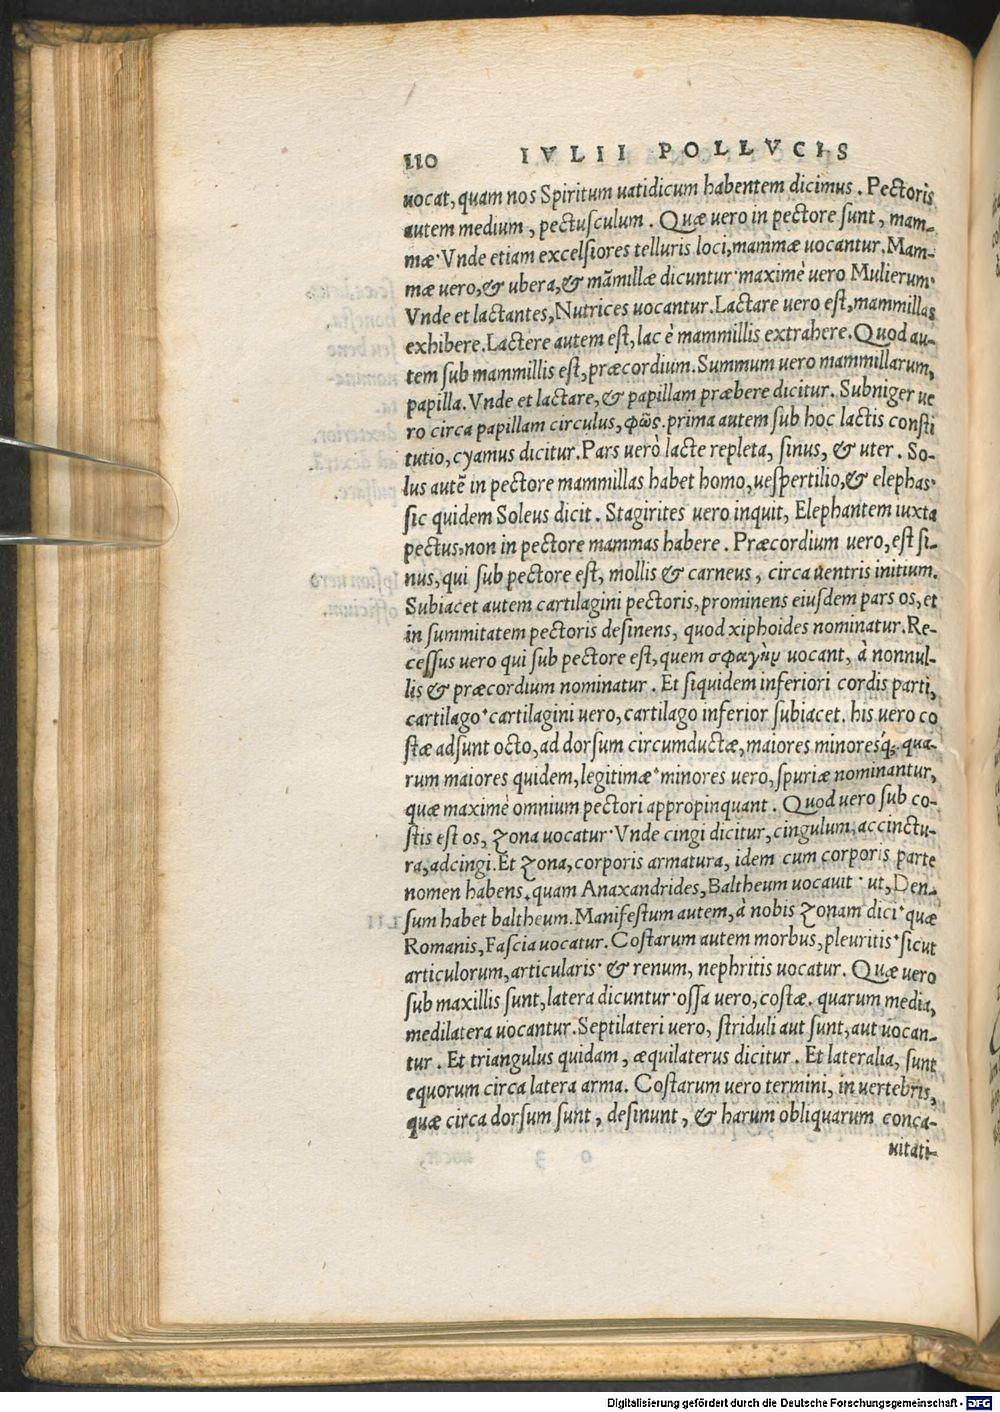 110 IVLII POLLVCIS
uocat, quam nos Spiritum uatidicum habentem dicimus. Pectoris
autem medium, pectusculum. Quæ uero in pectore sunt, mam-
mæ· Vnde etiam excelsiores telluris loci, mammæ uocantur. Mam-
mæ uero, & ubera, & mãmillæ dicuntur· maximè uero Mulierum·
Vnde et lactantes, Nutrices uocantur. Lactare uero est, mammillas
exhibere. Lactere autem est, lac è mammillis extrahere. Quod au-
tem sub mammillis est, præcordium. Summum uero mammillarum,
papilla. Vnde et lactare, & papillam præbere dicitur. Subniger ue
ro circa papillam circulus, φῶς. prima autem sub hoc lactis consti
tutio, cyamus dicitur. Pars uerò lacte repleta, sinus, & uter. So-
lus autẽ in pectore mammillas habet homo, uespertilio, & elephas·
sic quidem Soleus dicit. Stagirites uero inquit, Elephantem iuxta
pectus, non in pectore mammas habere. Præcordium uero, est si-
nus, qui sub pectore est, mollis & carneus, circa uentris initium.
Subiacet autem cartilagini pectoris, prominens eiusdem pars os, et
in summitatem pectoris desinens, quod xiphoides nominatur. Re-
cessus uero qui sub pectore est, quem σφαγὴν uocant, à nonnul-
lis & præcordium nominatur. Et siquidem inferiori cordis parti,
cartilago· cartilagini uero, cartilago inferior subiacet. his uero co
stæ adsunt octo, ad dorsum circumductæ, maiores minoresq́;. qua-
rum maiores quidem, legitimæ· minores uero, spuriæ nominantur,
quæ maximè omnium pectori appropinquant. Quod uero sub co-
stis est os, zona uocatur· Vnde cingi dicitur, cingulum, accinctu-
ra, adcingi. Et zona, corporis armatura, idem cum corporis parte
nomen habens, quam Anaxandrides, Baltheum uocauit· ut, Den-
sum habet baltheum. Manifestum autem, à nobis zonam dici· quæ
Romanis, Fascia uocatur. Costarum autem morbus, pleuritis· sicut
articulorum, articularis· & renum, nephritis uocatur. Quæ uero
sub maxillis sunt, latera dicuntur· ossa uero, costæ. quarum media,
medilatera uocantur. Septilateri uero, striduli aut sunt, aut uocan-
tur. Et triangulus quidam, æquilaterus dicitur. Et lateralia, sunt
equorum circa latera arma. Costarum uero termini, in uertebris,
quæ circa dorsum sunt, desinunt, & harum obliquarum conca-
uitati-
Digitalisierung gefördert durch die Deutsche Forschungsgemeinschaft - DFG